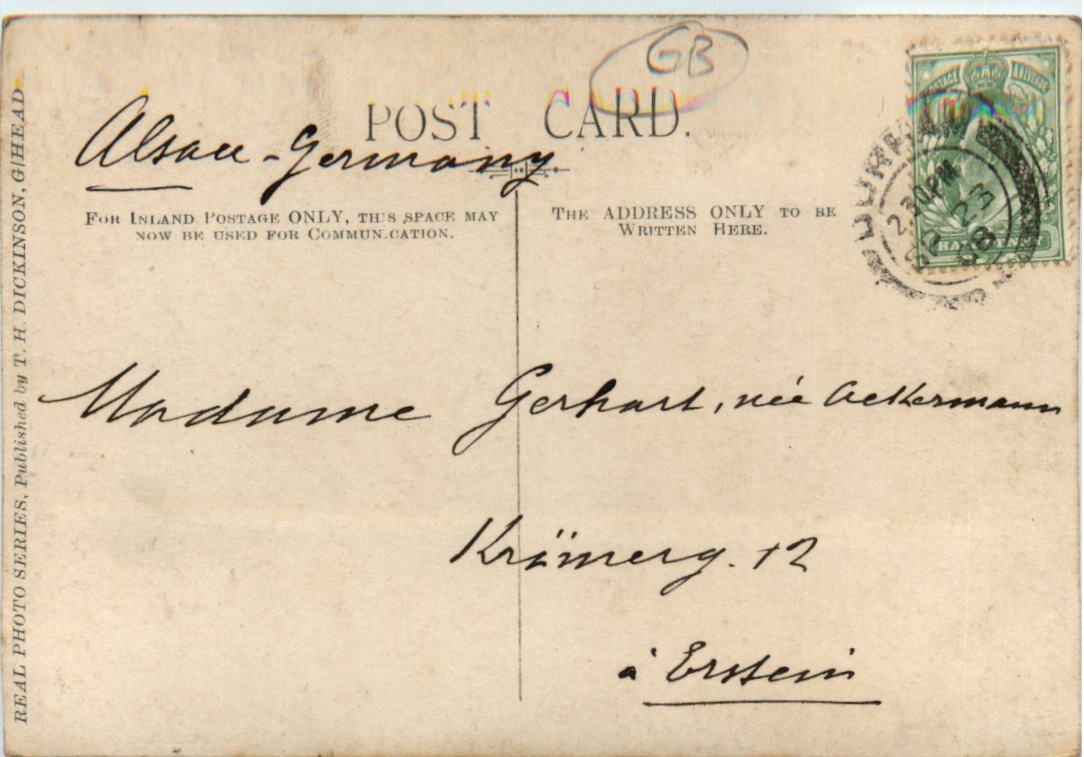 GB
POST CARD.
Alsace - Germany
FOR INLAND POSTAGE ONLY, THIS SPACE MAY
NOW BE USED FOR COMMUNICATION.
THE ADDRESS ONLY TO BE
WRITTEN HERE.
POSTAGE REVENUE
HALFPENNY
DURHAM
2.30PM
23
08
Madame Gerhart, née Ackermann
Krämerg. 12
à Erstein
REAL PHOTO SERIES, Published by T. H. DICKINSON, G/HEAD